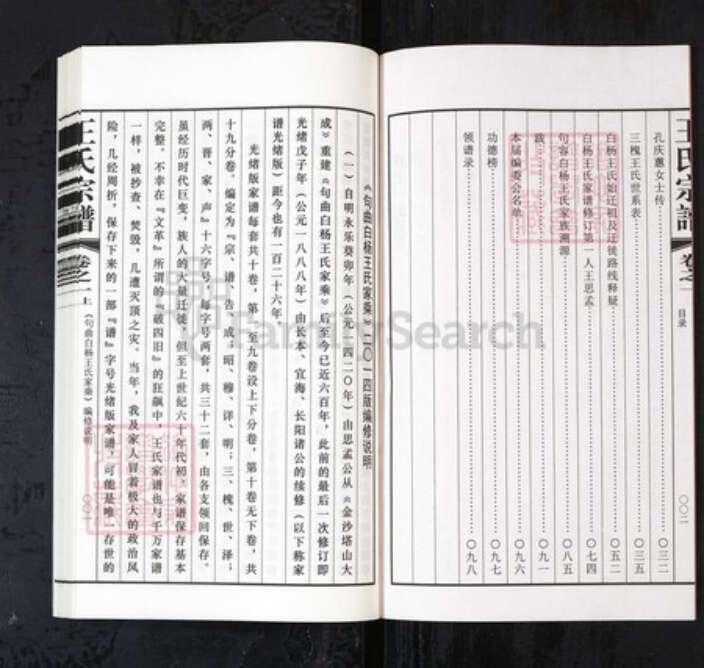 王氏宗譜
卷之一
目录
〇〇二
孔庆蕙女士传 〇三二
三槐王氏世系表 〇三五
白杨王氏始迁祖及迁徙路线释疑 〇五二
白杨王氏家谱修订第一人王思孟 〇七四
句容白杨王氏家族溯源 〇八五
跋 〇九一
本届编委会名单 〇九六
功德榜 〇九七
领谱录 〇九八
《句曲白杨王氏家乘》二〇一四版编修说明
(一)自明永乐癸卯年(公元一四二〇年)由思孟公从《金沙塔山大
成》重建《句曲白杨王氏家乘》后至今已近六百年,此前的最后一次修订即
光绪戊子年(公元一八八八年)由长本、宜海、长阳诸公的续修(以下称家
谱光绪版)距今也有一百二十六年。
光绪版家谱每套共十卷,第一至九卷设上下分卷,第十卷无下卷,共
十九分卷。编定为『宗、谱、告、成;昭、穆、详、明;三、槐、世、泽;
两、晋、家、声』十六字号,每字号两套,共三十二套,由各支领回保存。
虽经历时代巨变,族人的大量迁徙,但至上世纪六十年代初,家谱保存基本
完整。不幸在『文革』所谓的『破四旧』的狂飙中,王氏家谱也与千万家谱
一样,被抄查、焚毁,几遭灭顶之灾。当年,我及家人冒着极大的政治风
险,几经周折,保存下来的一部『谱』字号光绪版家谱,可能是唯一存世的
王氏宗譜
卷之一上
(句曲白杨王氏家乘)编修说明
〇〇一
FamilySearch